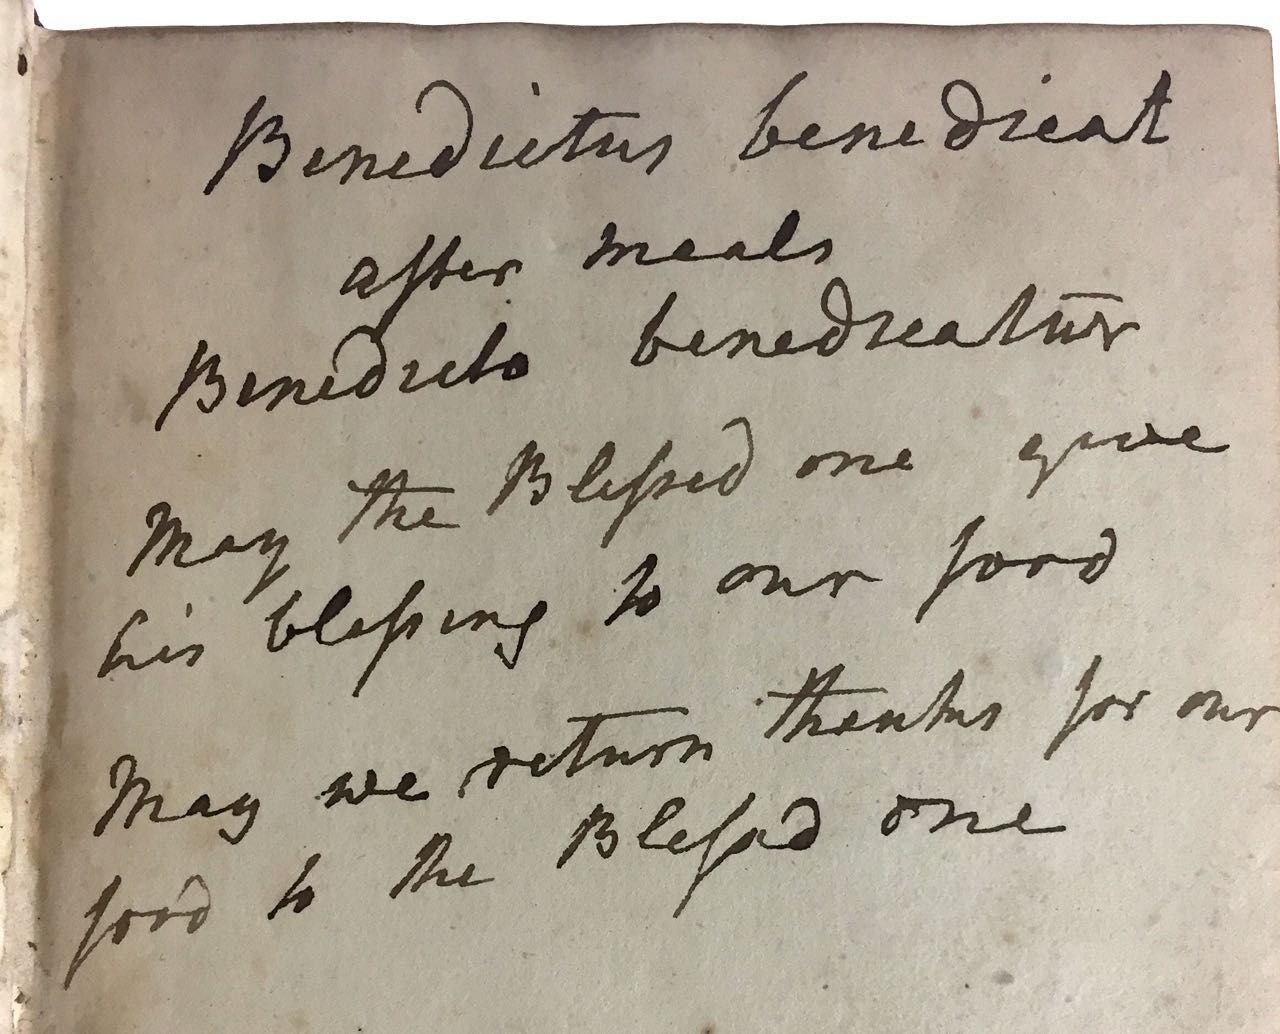 Benedictus benedicat
after meals
Benedicto benedicatur
May the Blessed one give
his blessing to our food
May we return thanks for our
food to the Blessed one